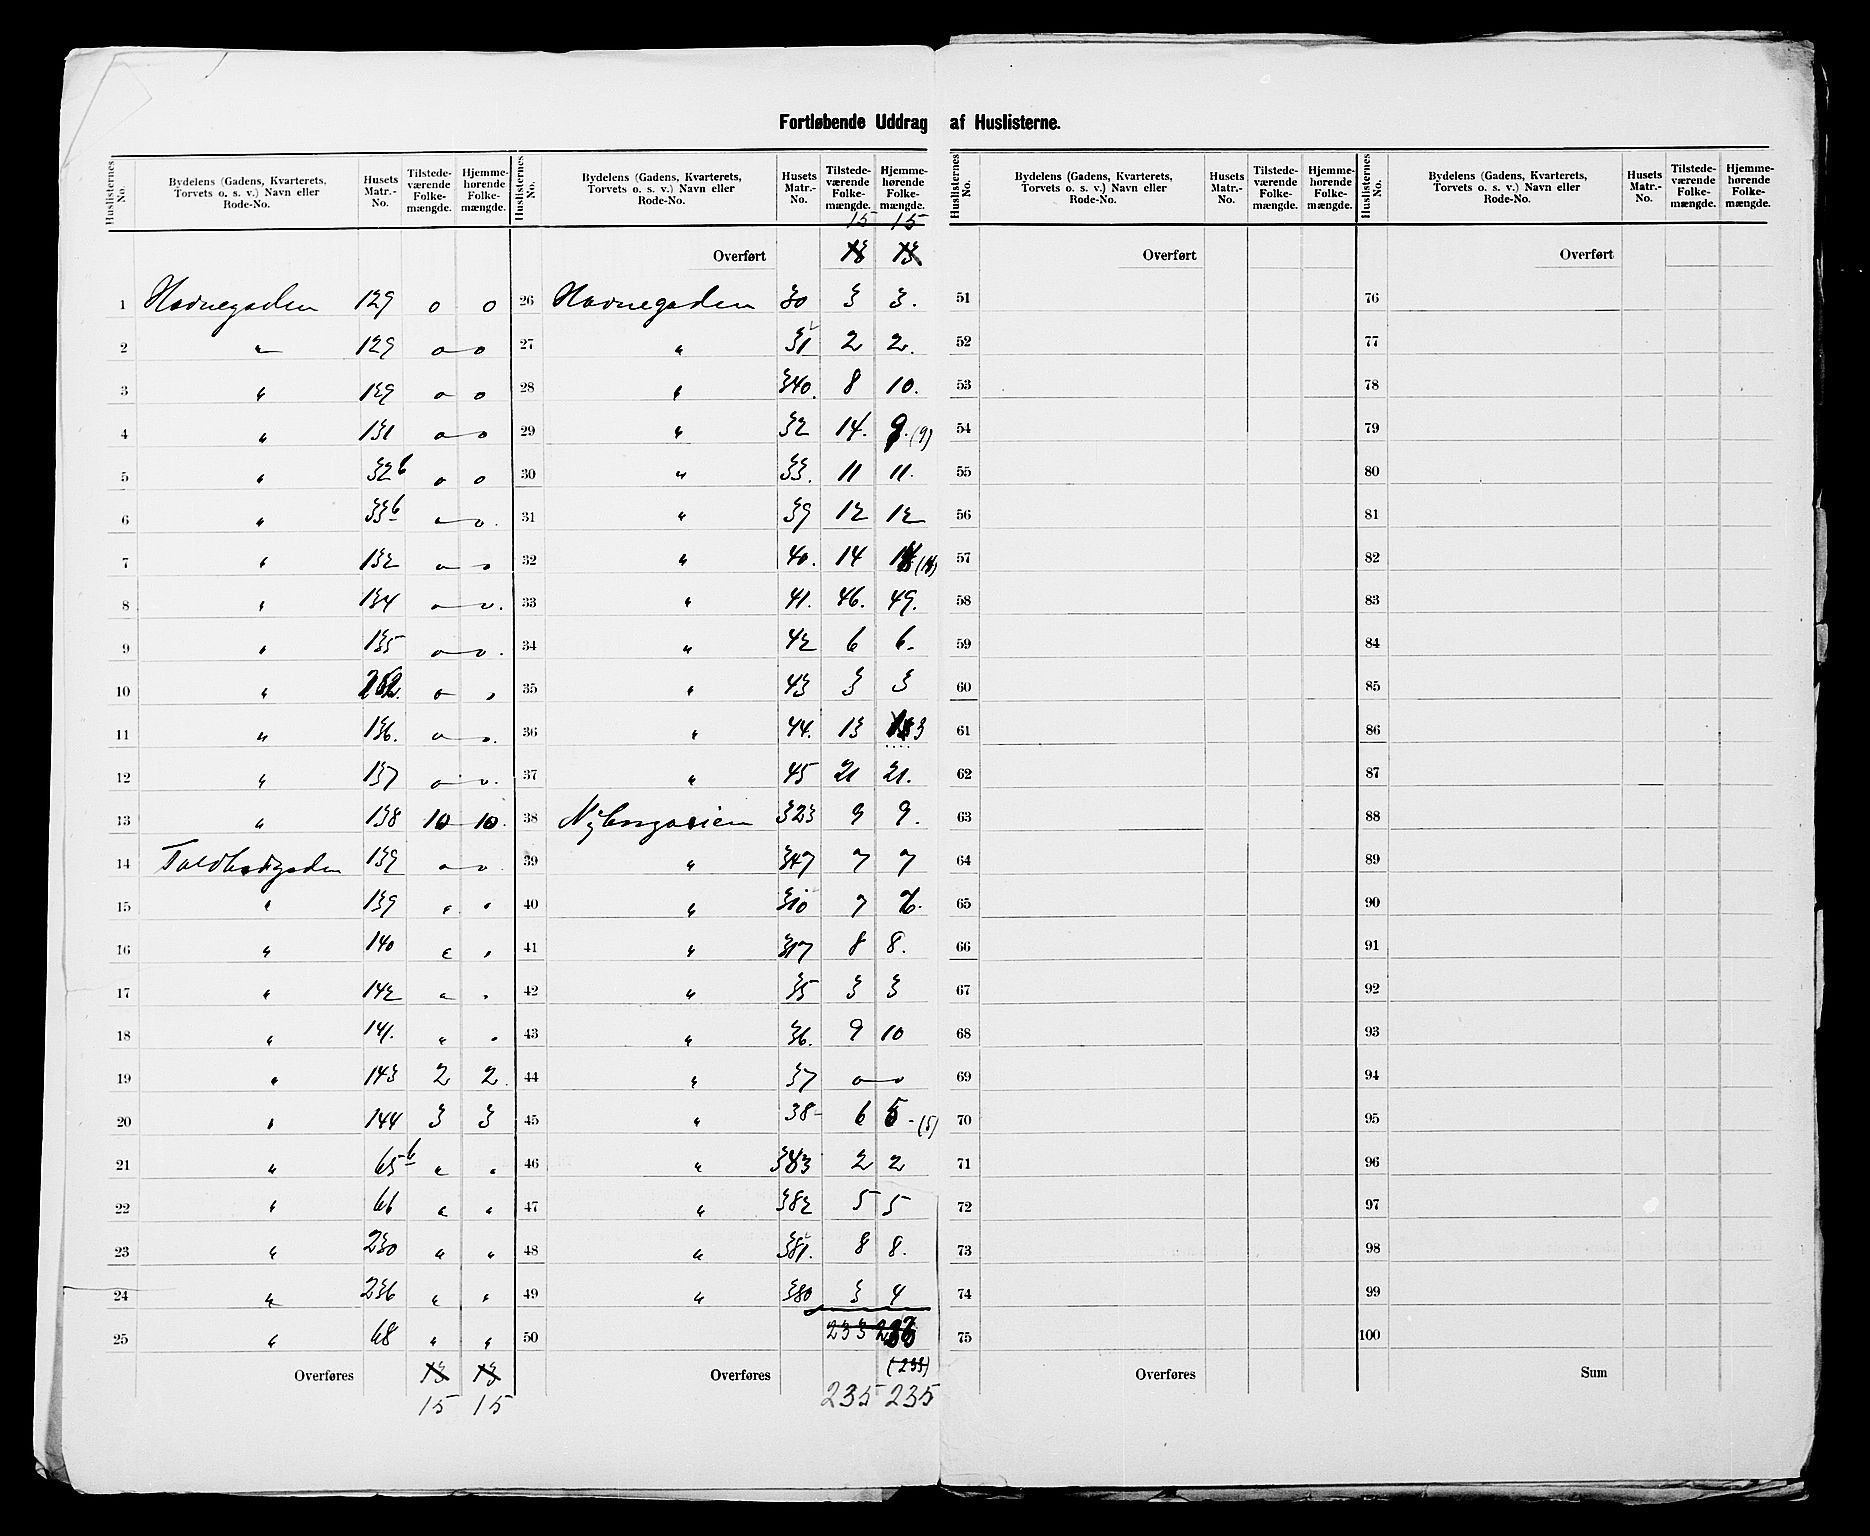 Fortløbende Uddrag af Huslisterne.
Huslisternes No. | Bydelens (Gadens, Kvarterets, Torvets o. s. v.) Navn eller Rode-No. | Husets Matr.-No. | Tilstede-værende Folke-mængde. | Hjemme-hørende Folke-mængde.
1 Havnegaden 129 0 0
2 " 129 0 0
3 " 129 0 0
4 " 131 0 0
5 " 32b 0 0
6 " 33b 0 0.
7 " 132 0 0
8 " 134 0 0.
9 " 135 0 0.
10 " 262. 0 0
11 " 136. 0 0.
12 " 137 0 0.
13 " 138 10 10.
14 Toldbodgaden 139 0 0
15 " 139 " "
16 " 140 " "
17 " 142 " "
18 " 141. " "
19 " 143 2 2.
20 " 144 3 3
21 " 65b " "
22 " 66 " "
23 " 230 " "
24 " 236 " "
25 " 68 " "
Overføres 13 13
15 15
Huslisternes No. | Bydelens (Gadens, Kvarterets, Torvets o. s. v.) Navn eller Rode-No. | Husets Matr.-No. | Tilstede-værende Folke-mængde. | Hjemme-hørende Folke-mængde.
15 15
Overført 13 13
26 Havnegaden 30 3 3.
27 " 31 2 2.
28 " 340. 8 10.
29 " 32 14. 9. (9)
30 " 33. 11 11.
31 " 39 12 12
32 " 40. 14 14 (14)
33 " 41. 46. 49.
34 " 42 6 6.
35 " 43 3 3
36 " 44. 13 13
37 " 45 21 21.
38 323 9 9.
39 " 347 7 7
40 " 310 7 6.
41 " 317 8 8.
42 " 35 3 3
43 " 36. 9 10
44 " 37 0 0
45 " 38 6 5 (5)
46 " 383 2 2
47 " 382 5 5
48 " 381. 8 8.
49 " 380 3 4
50 233
(233)
Overføres
235 235
Huslisternes No. | Bydelens (Gadens, Kvarterets, Torvets o. s. v.) Navn eller Rode-No. | Husets Matr.-No. | Tilstede-værende Folke-mængde. | Hjemme-hørende Folke-mængde.
Overført
51
52
53
54
55
56
57
58
59
60
61
62
63
64
65
66
67
68
69
70
71
72
73
74
75
Overføres
Huslisternes No. | Bydelens (Gadens, Kvarterets, Torvets o. s. v.) Navn eller Rode-No. | Husets Matr.-No. | Tilstede-værende Folke-mængde. | Hjemme-hørende Folke-mængde.
Overført
76
77
78
79
80
81
82
83
84
85
86
87
88
89
90
91
92
93
94
95
96
97
98
99
100
Sum